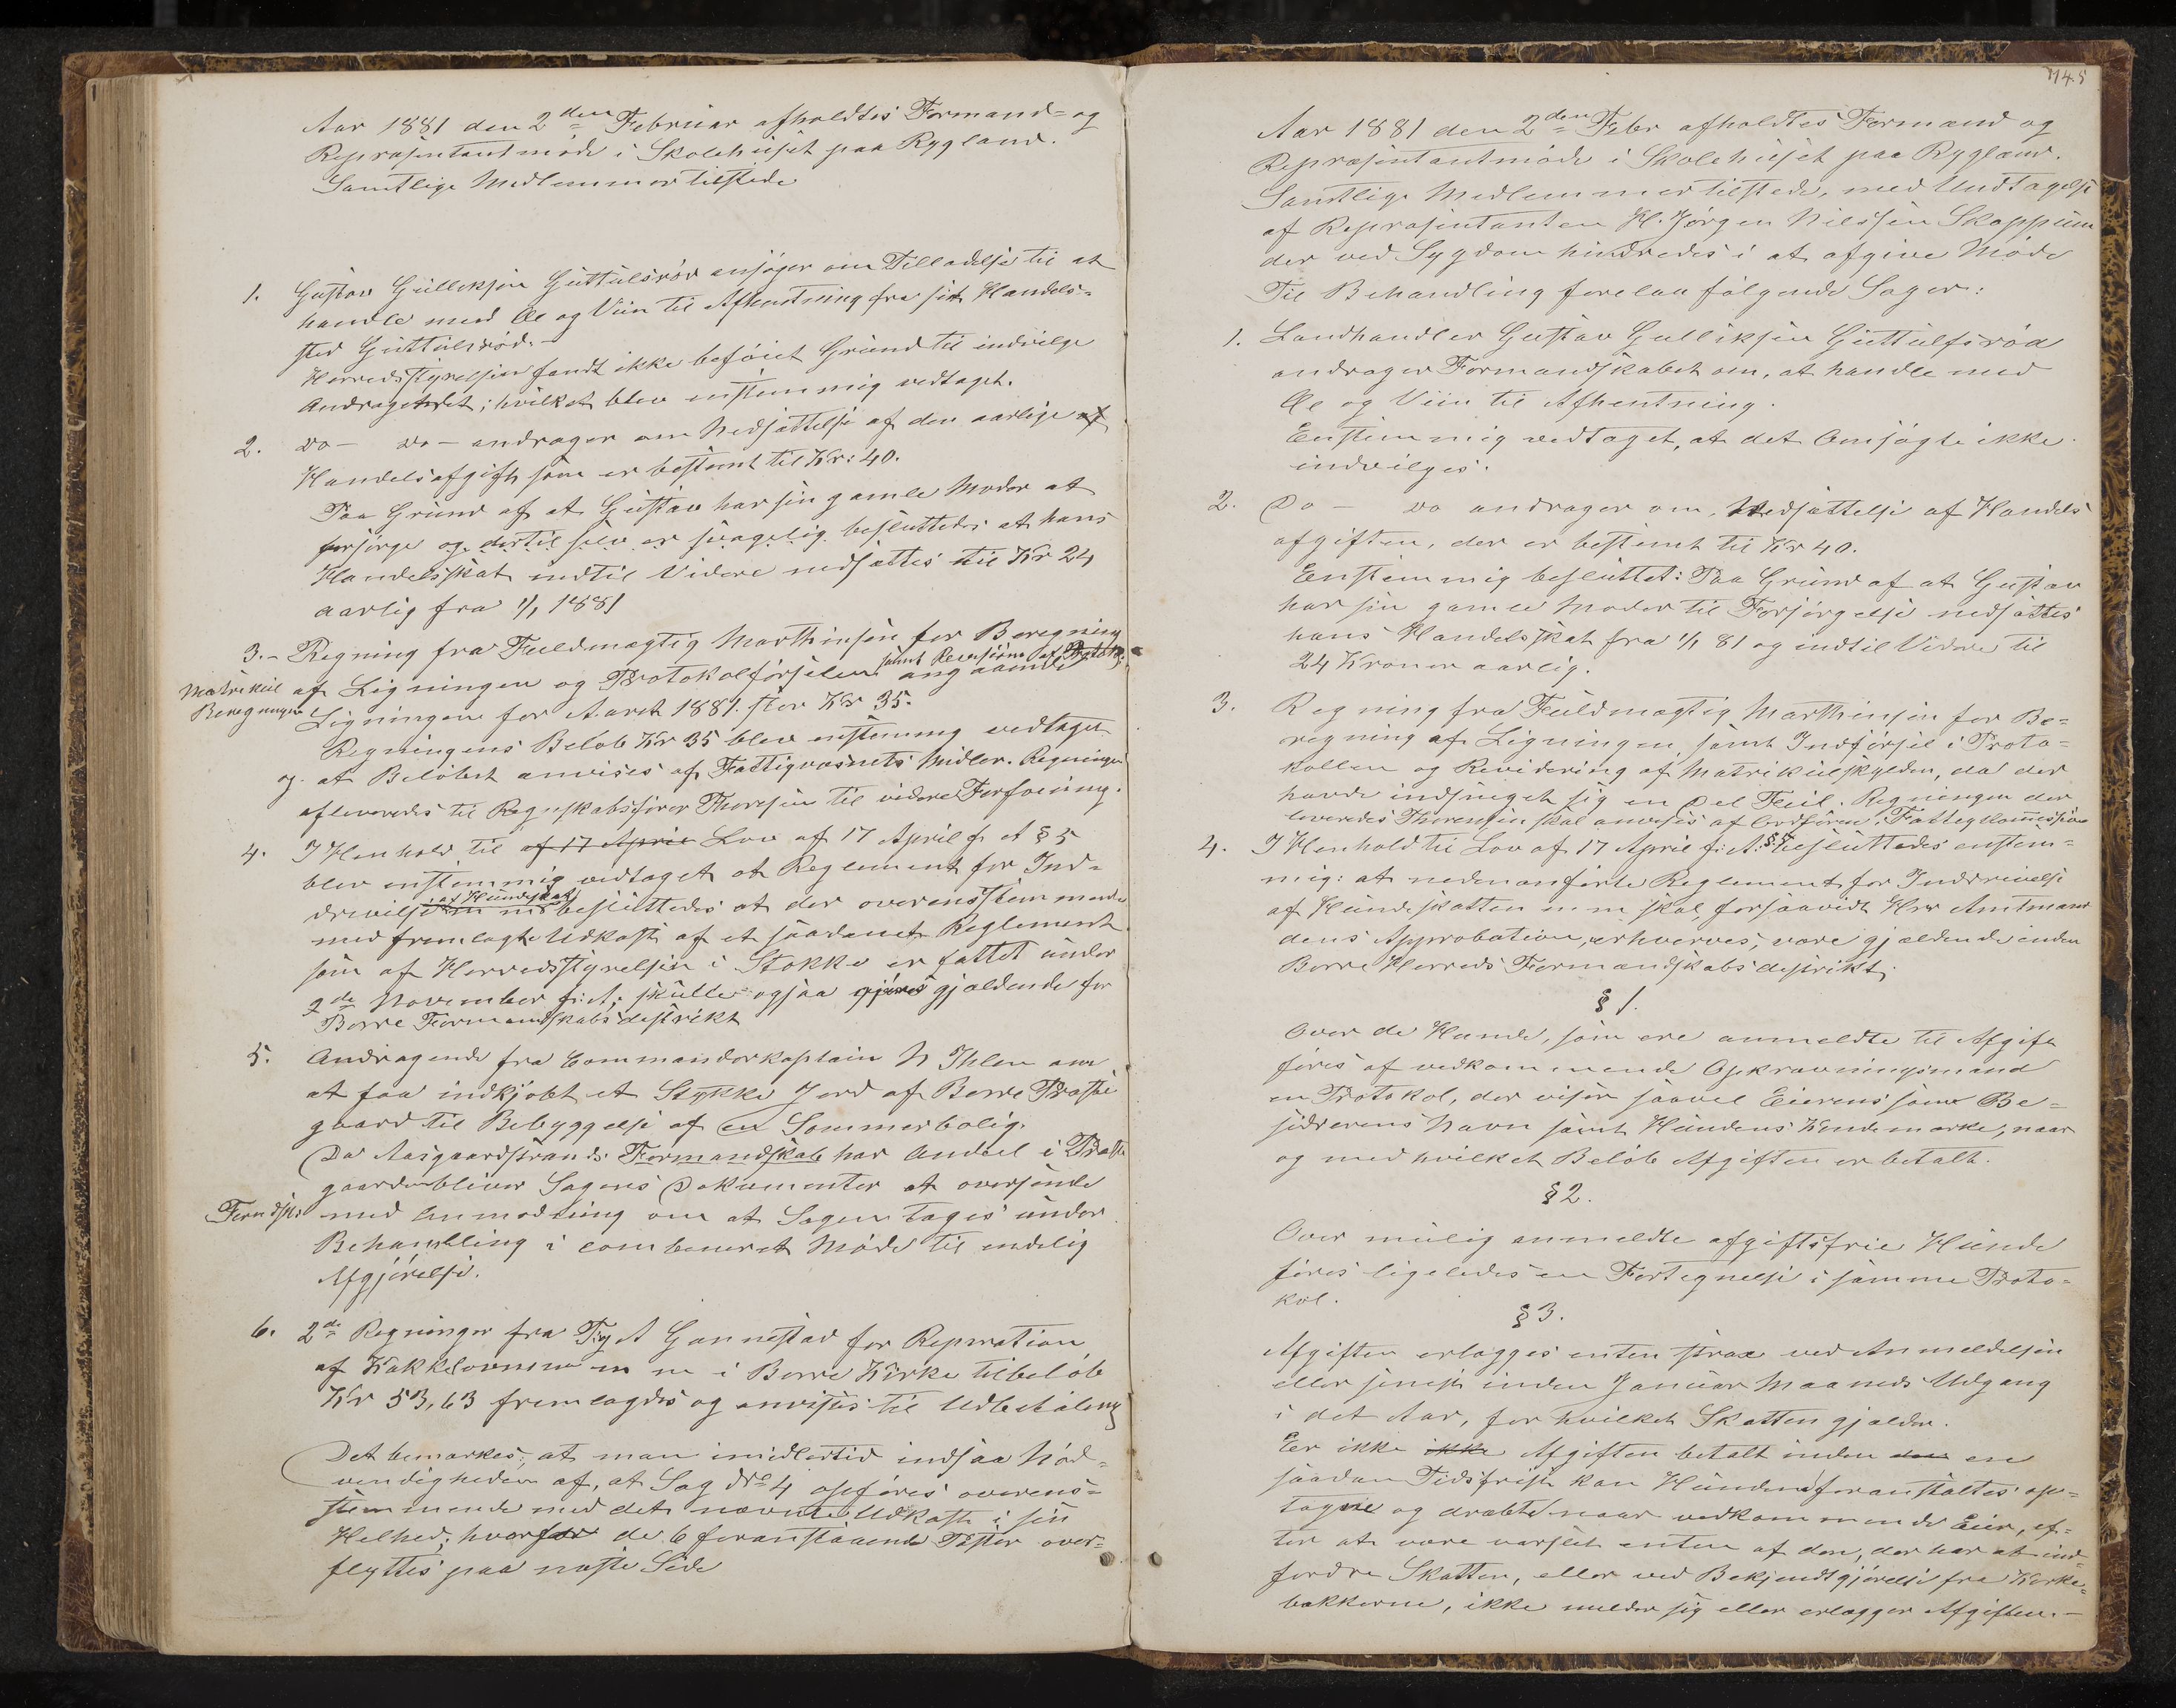 Aar 1881 den 2den Februar afholdtes Formand- og
Repræsentantmøde i Skolehuset paa Rygland.
Samtlige Medlemmer tilstede
1. Gustav Gulliksen Guttulsrød ansøger om Tilladelse til at
handle med Øl og Viin til Afhentning fra sit Handels-
sted Guttulsrød.-
Herredsstyrelsen fandt ikke beføiet Grund til indvilge
Andragendet; hvilket blev enstemmig vedtaget.
2. do- do- andrager om Nedsættelse af den aarlige af
Handelsafgift som er bestemt til Kr: 40.
Paa Grund af at Gustav har sin gamle Moder at
forsørge og dertil selv er svagelig besluttedes at hans
Handelsskat indtil Videre nedsættes til Kr 24
aarlig fra 1/1 1881
3.- Regning fra Fuldmægtig Marthinsen for Beregning
af Ligningen og Protokolførselen samt Revisjon af
Matrikul Beregningen
Ligningen for Aaret 1881. stor Kr 35.
Regningens Beløb Kr 35 blev enstemmig vedtaget
og at Beløbet anvises af Fattigvæsnets Midler. Regningen
afleveredes til Regnskabsfører Thoresen til videre Forføining.
4. I Henhold til af 17 April Lov af 17 April f. A § 5
blev enstemmig vedtaget at Reglement for Ind-
drivelse af Hundeskat besluttedes at der overensstemmende
med fremlagte Udkast af et saadant Reglement
som af Herredsstyrelsen i Stokke er fattet under
2de November f: A; skulle ogsaa gjøres gjældende for
Borre Formandskabsdistrikt
5. Andragende fra Commandørkaptain N Ihlen om
at faa indkjøbt et Stykke Jord af Borre Præste
gaard til Bebyggelse af en Sommerbolig.
Da Aasgaardstrands Formandskab har Andel i Præste
gaarden bliver Sagens Dokumenter at oversende
Formdsk: med Anmodning om at Sagen tages under
Behandling i combineret Møde til endelig
Afgjørelse.
6. 2de Regninger fra A Gannestad for Repration
af Kakkelovnene m m i Borre Kirke tilbeløb
Kr 53,63 fremlagdes og anvises til Udbetaling
Det bemærkes, at man imidlertid indsaa Nød-
vendigheden af, at Sag No 4 opføres overens-
stemmende med det nævnte Udkast i sin
Helhed; hvorfor de 6 foranstaaende Poster over-
flyttes paa næste Side
145
Aar 1881 den 2den Febr afholdtes Formand og
Repræsentantmøde i Skolehuset paa Rygland.
Samtlige Medlemmer tilstede, med Undtagelse
af Repræsentanten H. Jørgen Nilssen Skoppum
der ved Sygdom hindredes i at afgive Møde
Til Behandling forelaa følgende Sager:
1. Landhandler Gustav Gulliksen Guttulfsrød
andrager Formandskabet om, at handle med
Øl og Viin til Afhentning.
Enstemmig vedtaget, at det Ansøgte ikke
indvilges.
2. Do - do andrager om, Nedsættelse af Handels
afgiften, der er bestemt til Kr 40.
Enstemmig besluttet: Paa Grund af at Gustav
har sin gamle Moder til Forsørgelse nedsættes
hans Handelsskat fra 1/1 81 og indtil Videre til
24 Kroner aarlig.
3. Regning fra Fuldmægtig Marthinsen for Be-
regning af Ligningen, samt Indførsel i Proto-
kollen og Revidering af Matrikulskylden, da der
havde indsneget sig en Del Feil. Regningen der
leveredes Thorensen skal anvises af Ordføren i Fattigkommission
4. I Henhold til Lov af 17 April f: A: § 5 besluttedes enstem-
mig: at nedenanførte Reglement for Inddrivelse
af Hundeskatten m m skal, forsaavidt Hr Amtmand
dens Approbation, erhverves, være gjældende inden
Borre Herreds Formandskabsdistrikt.
§ 1.
Over de Hunde, som ere anmeldte til Afgift
føres af vedkommende Opkrævningsmand
en Protokol, der viser saavel Eierens som Be-
sidderens Navn samt Hundens Kendemærke, naar
og med hvilket Beløb Afgiften er betalt.
§ 2.
Over mulig anmeldte afgiftsfrie Hunde
føres ligeledes en Fortegnelse i samme Proto-
kol.
§ 3.
Afgiften erlægges enten strax ved Anmeldelsen
eller senest inden Januar Maaneds Udgang
i det Aar, for hvilket Skatten gjælder.
Er ikke ikke Afgiften betalt inden den en
saadan Tidsfrist kan Hunden foranstaltes op-
tagne og dræbte naar vedkommende Eier, ef-
ter at være varslet enten af den, der har at ind-
fordre Skatten, eller ved Bekjendtgjørelse fra Kirke-
bakkerne, ikke melder sig eller erlægger Afgiften.-